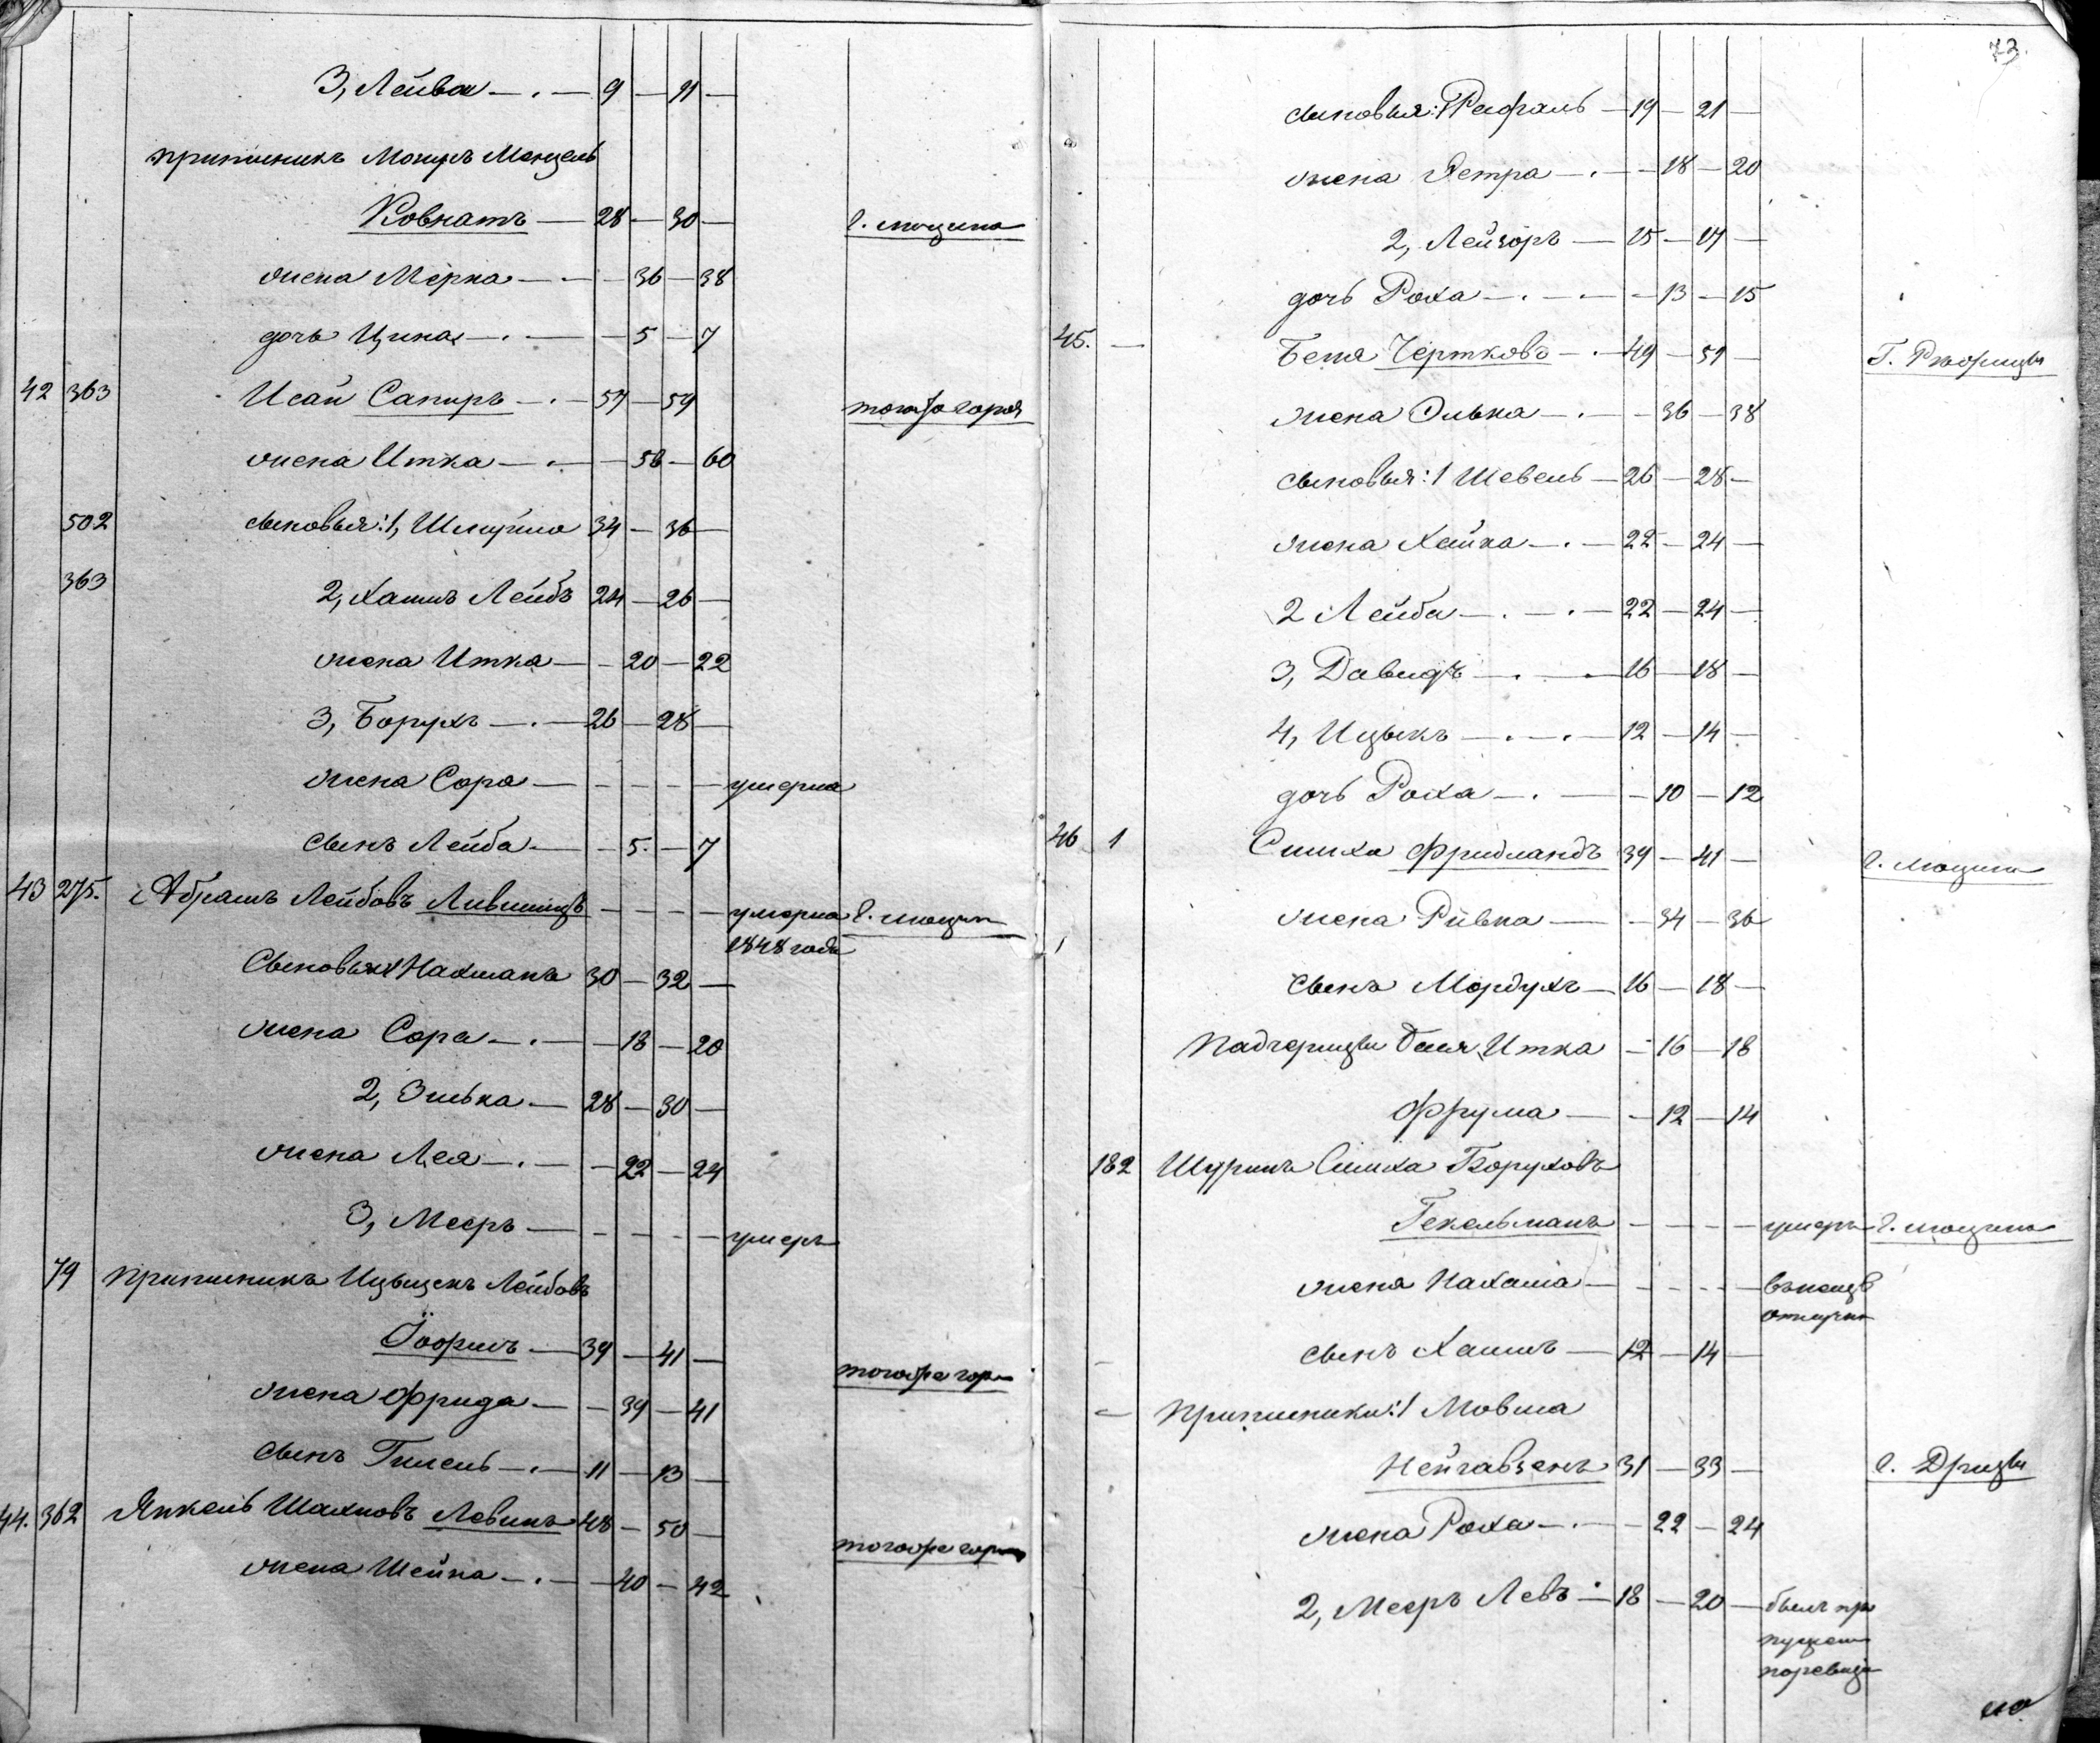 3, Лейба — 9 — 11 —
припишникъ Мендель
Ковнатъ — 28 — 30 —
жена Мерка — 36 — 38
дочь Цина — 5 — 7
42 363 Исай Сапиръ — 57 — 59 тогоже города
жена Итка — 58 — 60
502 сыновья: 1, Шлиома 34 — 36 —
363 2, Хаимъ Лейбъ 24 — 26 —
жена Итка — 20 — 22
3, Борухъ — 26 — 28 —
жена Сора — — — — умерла
сынъ Лейба — 5 — 7
43 275. Абрамъ Лейбовъ Лившицъ — — — — умерла
1848 года
Сыновья 1 Нахманъ 30 — 32 —
жена Сора — 18 — 20
2, Элька — 28 — 30 —
жена Лея — 22 — 24
3, Мееръ — — — — умеръ
79 припишникъ Лейбовъ
39 — 41 — тогоже гор
жена Фрида — 39 — 41
сынъ Гилель — 11 — 13 —
44. 362 Янкель Шахновъ Левинъ 48 — 50 — тогоже гор
жена Шейна — 40 — 42
73.
сыновья: 1 Рафаль — 19 — 21 —
жена Эстра — 18 — 20
2, Лейзоръ — 15 — 17 —
дочь Роха — 13 — 15
45. — Беня Чертковъ — 49 — 51 — Г. Рѣжицы
жена Элька — 36 — 38
сыновья: 1 Шевель — 26 — 28 —
жена Хайка — 22 — 24 —
2 Лейба — 22 — 24 —
3, Давидъ — 16 — 18 —
4, Ицыкъ — 12 — 14 —
дочь Роха — 10 — 12
46 1 Симха Фридландъ 39 — 41 —
жена Ривка — 34 — 36
сынъ Мордухъ — 16 — 18 —
Падчерицы Бася Итка — 16 — 18
Фрума — 12 — 14
182 Шуринъ Симха Боруховъ
Гекельманъ — — — — умеръ
жена Нахама — — — —
сынъ Хаимъ — 12 — 14 —
— Припишники: 1 Мовша
Нейгавзенъ 31 — 33 — г. Дризы
жена Роха — 22 — 24
2, Мееръ Левъ — 18 — 20 — былъ про
пущен
по ревизи